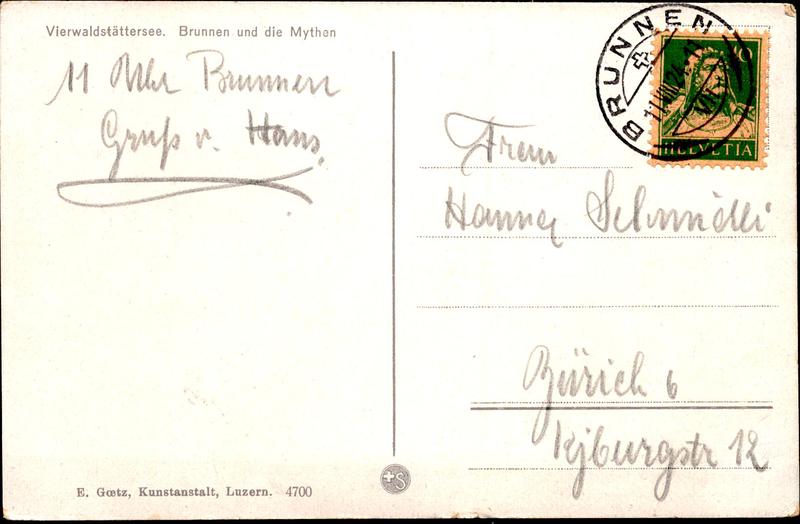 Vierwaldstättersee. Brunnen und die Mythen
11 Uhr Brunnen
Gruß v. Hans.
BRUNNEN
11.VIII.24.-11
10
HELVETIA
Frau
Hanna Schmidli
Zürich 6
Kyburgstr 12
E. Gœtz, Kunstanstalt, Luzern. 4700
S